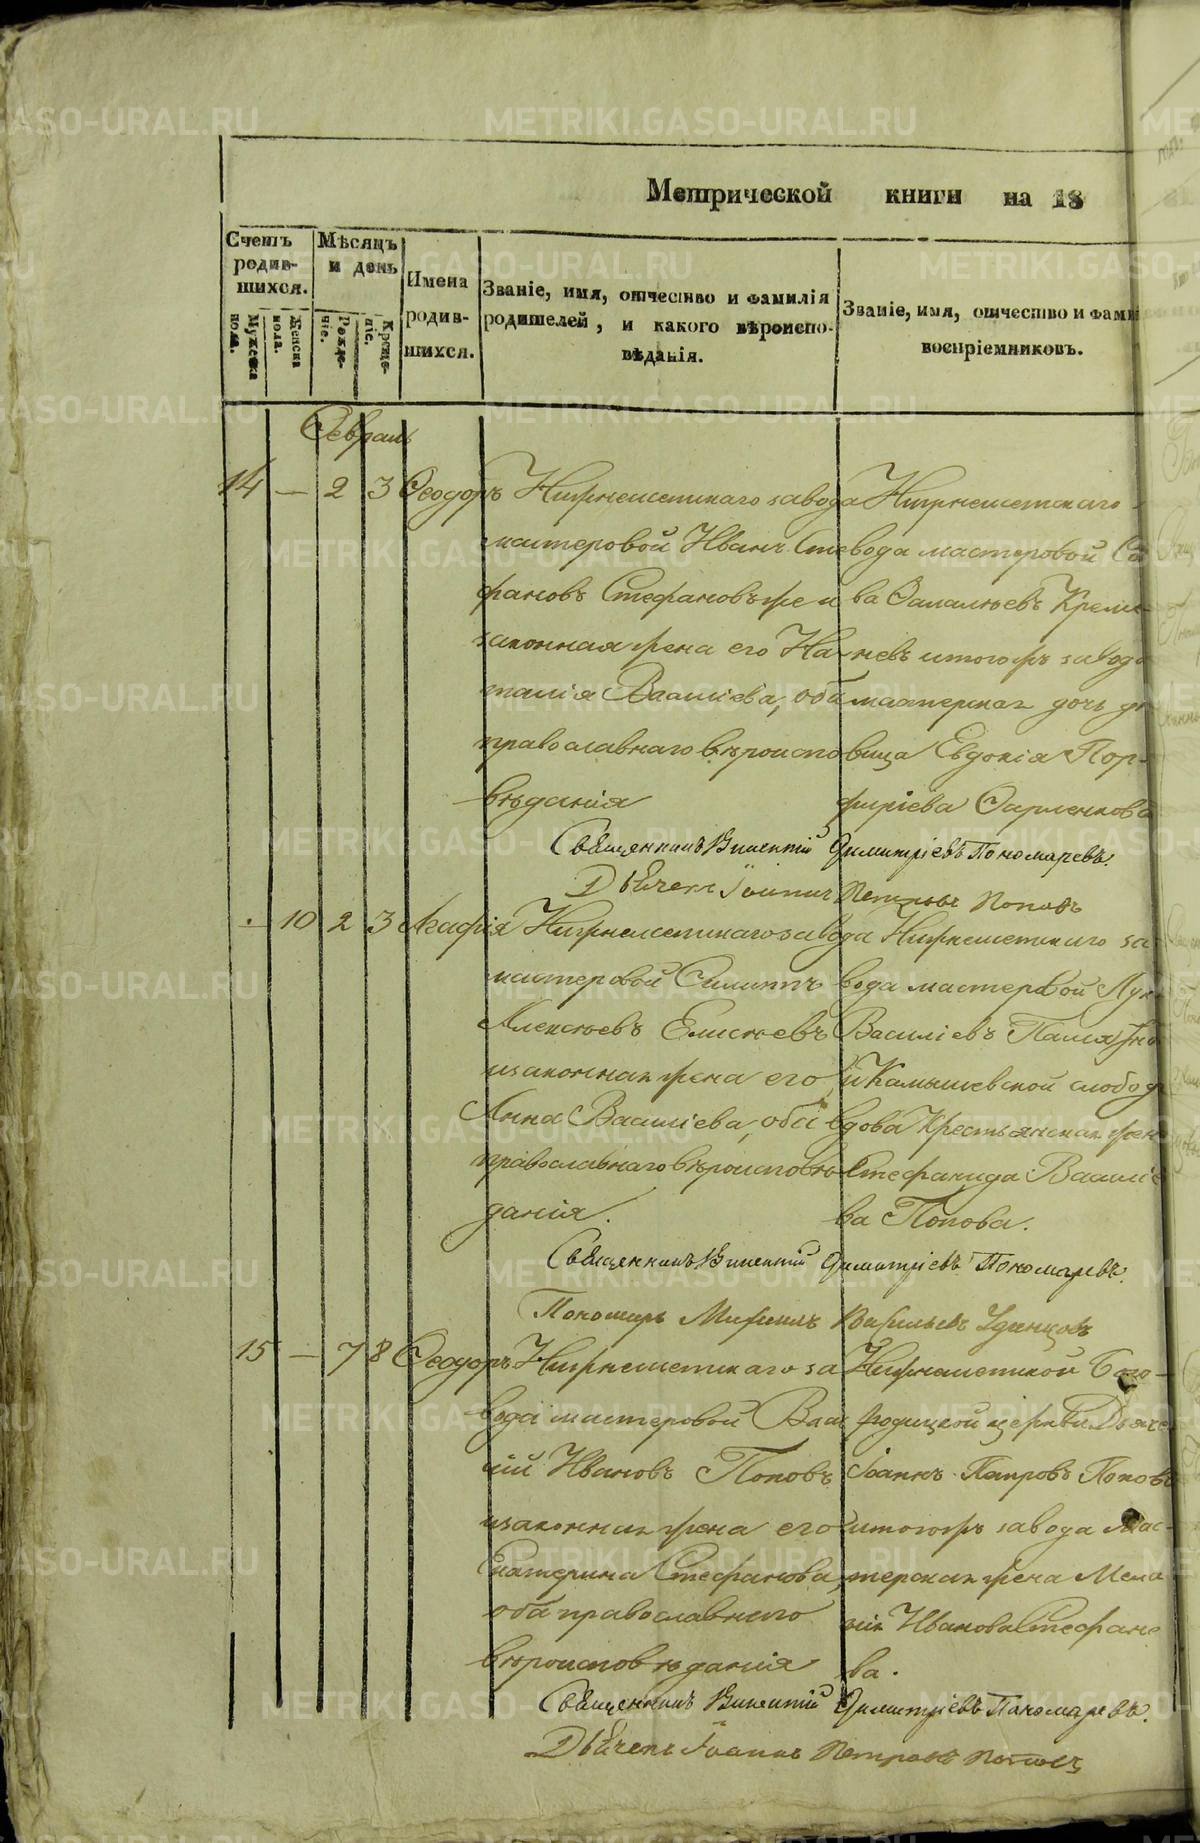 Метрической книги на 18
Счетъ родив-шихся.
Мужеска пола.
Женска пола.
Мѣсяцъ и день
Рожде-ніе.
Креще-ніе.
Имена родив-шихся.
Званіе, имя, отчество и фамилія родителей, и какого вѣроиспо-вѣданія.
Званіе, имя, отчество и фами
воспріемниковъ.
Февраль
14 — 2 3 Феодоръ
Нижнеисетскаго завода
мастеровой Иванъ Сте
фановъ Стефановъ же и
законная жена его На-
талія Васаліева, оба
православнаго вѣроиспо
вѣданія
Нижнеисетскаго
вода мастеровой
ва Крем
невъ и тогожъ завода
мастерская дочь дѣ
вица Евдокія Пор-
фиріева
Священникъ Викентій Димитріевъ Пономаревъ.
Дьячекъ Іоаннъ Петровъ Поповъ
— 10 2 3 Агафія
Нижнеисетскаго завода
мастеровой Филиппъ
Алексѣевъ Елисѣевъ
и законная жена его
Анна Василіева, оба
православнаго вѣроисповѣ
данія.
Нижнеисетскаго за-
вода мастеровой Лук
Василіевъ
и Камышевской слобод
вдова Крестьянская жен
Стефанида Василіе
ва Попова.
Священникъ Викентій Димитріевъ Пономаревъ.
Пономарь Михаилъ Васильевъ Удинцовъ
15 — 7 8 Феодоръ
Нижнеисетскаго за
вода мастеровой Васи
лій Ивановъ Поповъ
и законная жена его
Екатерина Стефанова,
оба православнаго
вѣроисповѣданія
Нижнеисетской Бого-
родицкой церкви Дьяче
Іоаннъ Петровъ Поповъ
и тогожъ завода мас-
терская жена Мела
нія Иванова Стефано
ва.
Священникъ Викентій Димитріевъ Пономаревъ.
Дьячекъ Іоаннъ Петровъ Поповъ
METRIKI.GASO-URAL.RU